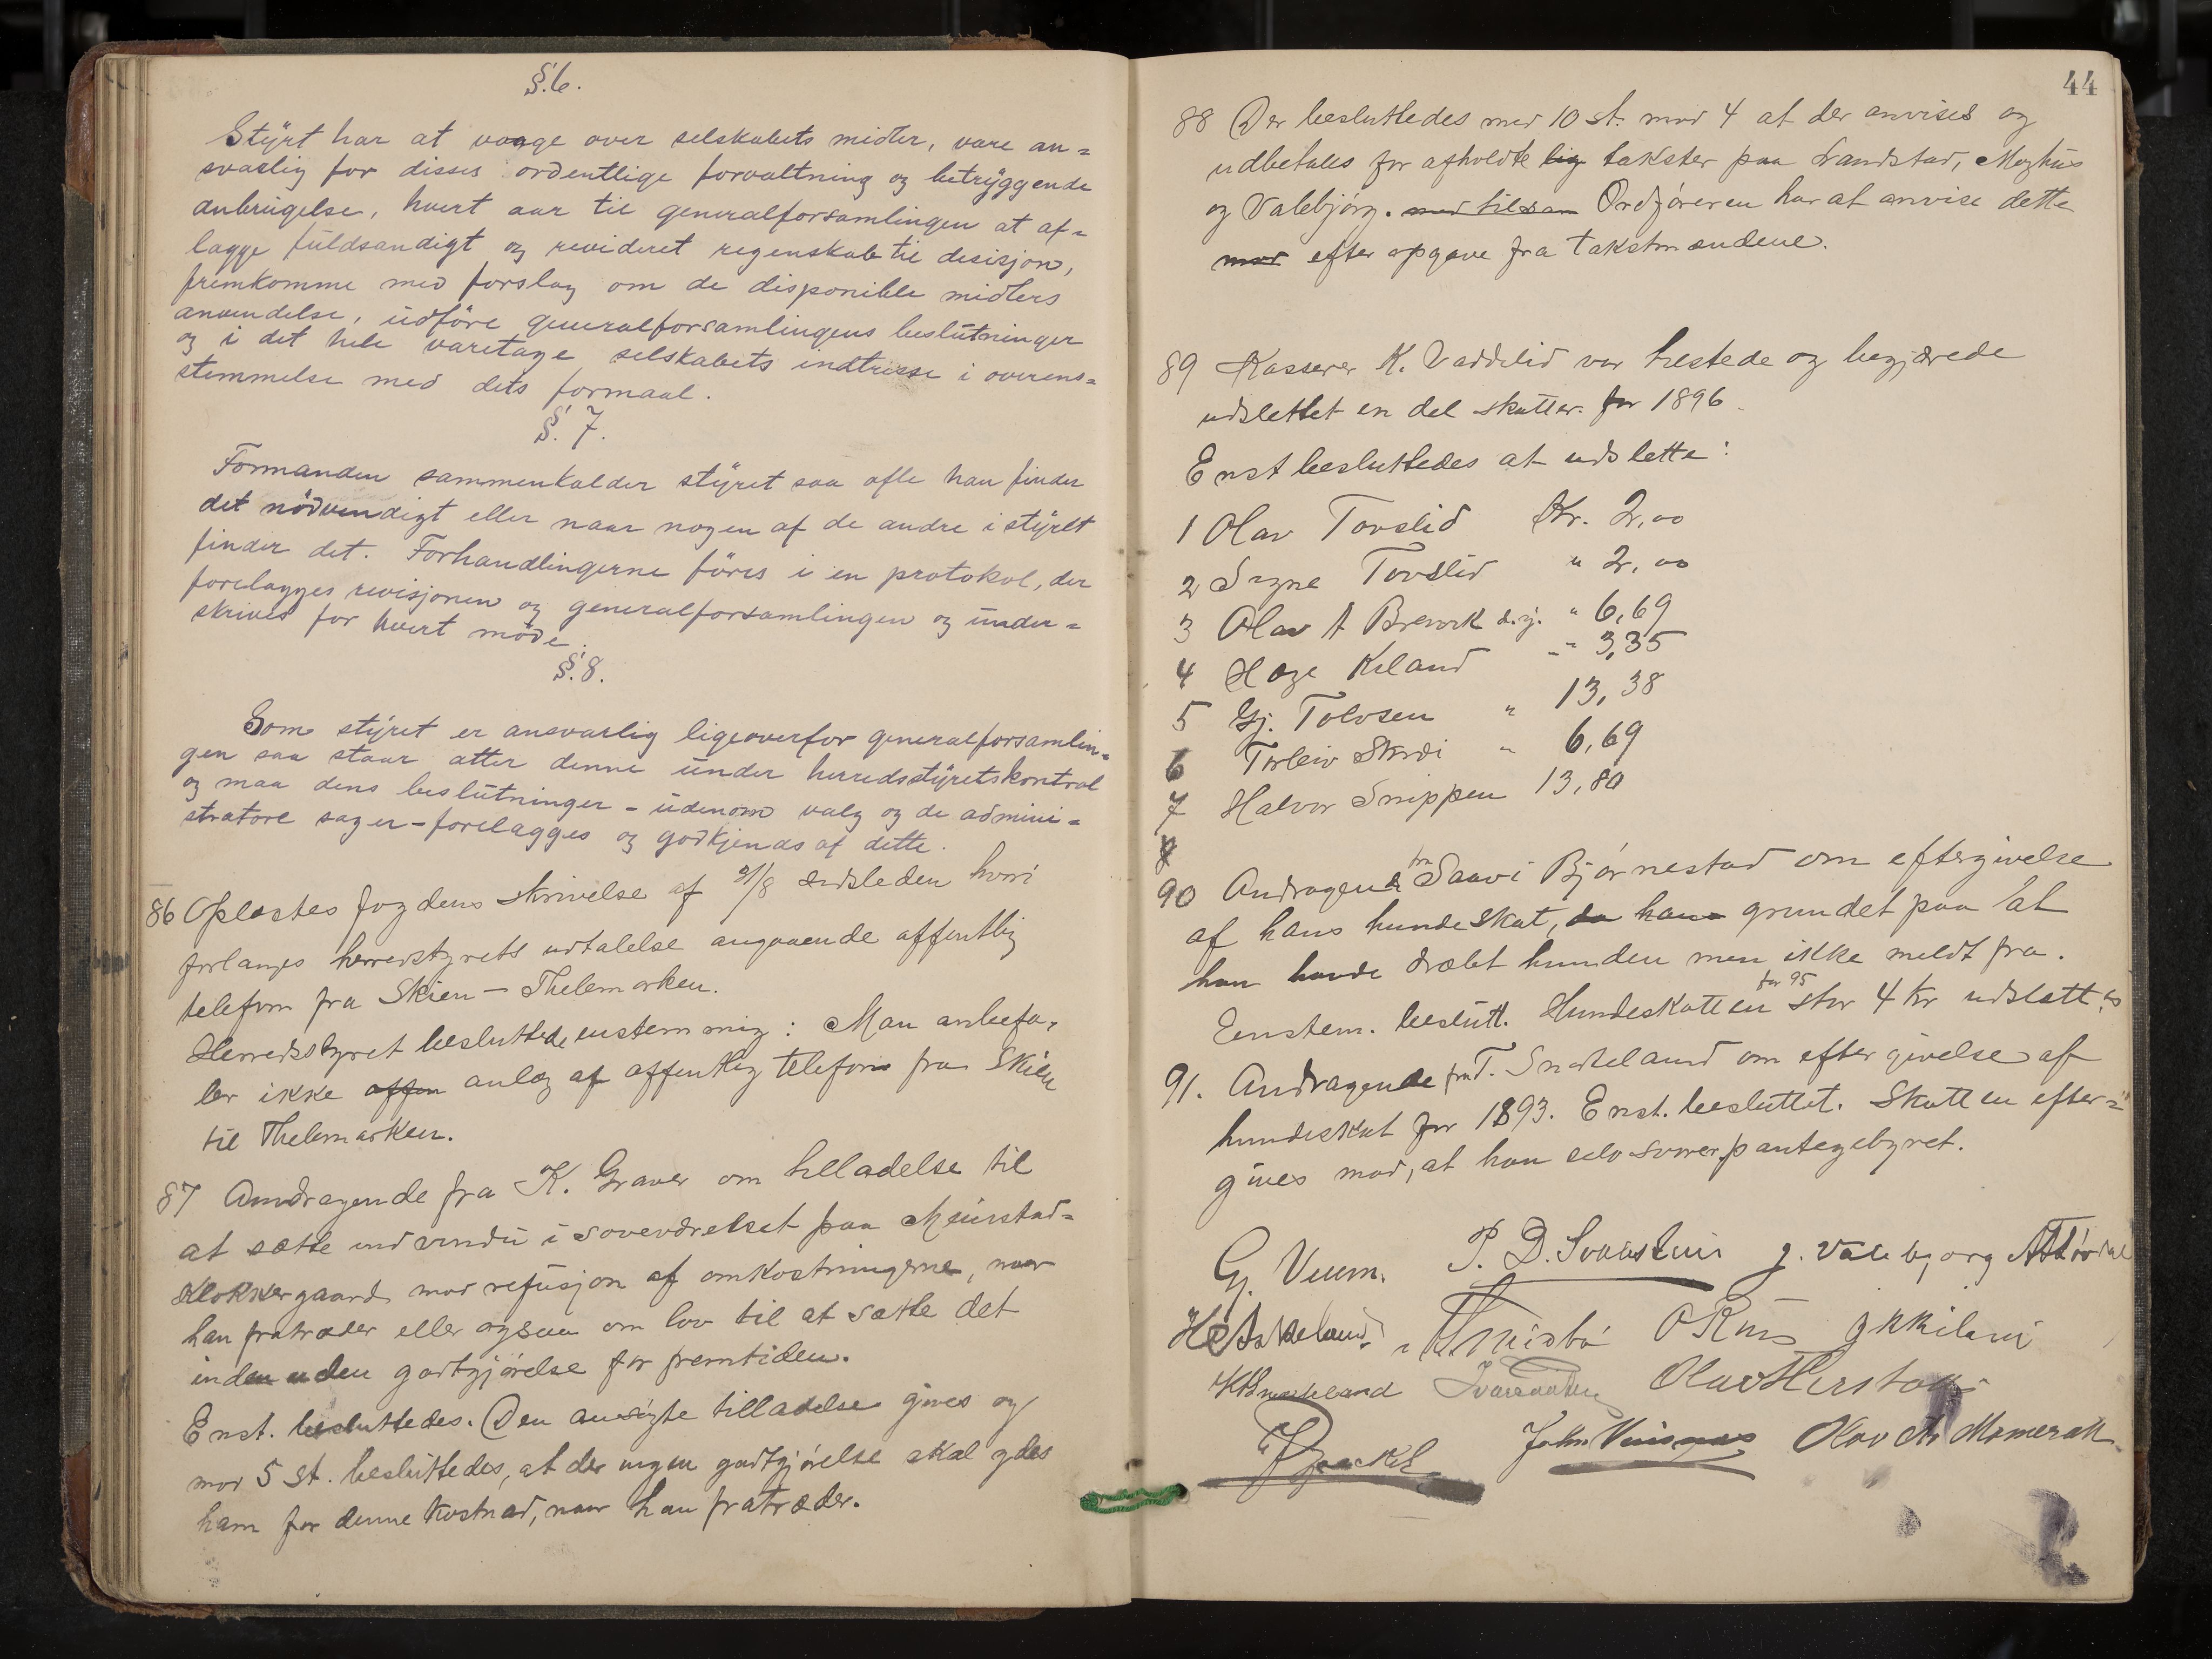 §.6.
Styrt har at vaage over selskabets midler, være an=
svarlig for disses ordentlige forvaltning og betryggende
anbringelse, hvert aar til generalforsamlingen at af=
lægge fuldstændigt og revideret regenskab til desisjon,
fremkomme med forslag om de disponible midlers
anvendelse, udføre generalforsamlingens beslutninger
og i det hele varetage selskabets indtresse i overens=
stemmelse med dets formaal.
§. 7.
Formanden sammenkalder styret saa ofte han finder
det nödvendigt eller naar nogen af de andre i styret
finder det. Forhandlingerne föres i en protokol, der
forelægges revisjonen og generalforsamlingen og under=
skrives for hvert möde.
§.8.
Som styret er ansvarlig ligeoverfor generalforsamlin=
gen saa staar atter denne under herredsstyrets kontrol
og maa dens beslutninger - udenom valg og de admini=
strative sager - forelægges og godkjendes af dette.
86 Oplæstes fogdens skrivelse af 21/8 sidsleden hvori
forlanges herredstyrets udtalelse angaaende offentlig
telefon fra Skien - Thelemarken.
Herredsstyret besluttede enstemmig: Man anbefa-
ler ikke offen anlæg af offentlig telefon fra Skien
til Thelemarken.
87 Andragende fra K. Graver om tilladelse til
at sætte ind vindu i soveværelset paa Meinstad=
Klokkergaard mod refusjon af omkostningerne, naar
han fratræder eller ogsaa om lov til at sætte det
ind uden godtgjørelse for fremtiden.
Enst. besluttedes. Den ansøgte tilladelse gives og
mod 5 st. besluttedes, at der ingen godtgjørelse skal ydes
ham for denne kostnad, naar han fratræder.
44
88 Der besluttedes med 10 st. mod 4 at der anvises og
udbetales for afholdte lig takster paa Sandstad, Moghus
og Valebjørg. med tilsam Ordføreren har at anvise dette
mod efter opgave fra takstmændene.
89 Kasserer K. Vaddelid var tilstede og begjærede
udslettet en del skatter for 1896.
Enst besluttedes at udslette:
1 Olav Tovslid Kr. 2,00
2 Sygne Tovslid " 2,00
3 Olav A Brevik d.y. " 6,69
4 Hæge Kiland " 3,35
5 Gj. Tolvsen " 13,38
6 Torleiv Skredi " 6,69
7 Halvor Snippen 13,80
8
90 Andragende fra Saavi Bjørnestad om eftergivelse
af hans hundeskat, da hans grundet paa at
han havde dræbt hunden men ikke meldt fra.
Eenstem. beslutt. Hundeskatten for 95 stor 4 kr udslettes
91. Andragende fra T. Snekeland om eftergivelse af
hundeskat for 1893. Enst. besluttet. Skatten efter=
gives mod, at han selv svarer pantegebyret.
G. Veum. P. D. Svaastun g. Valebjørg
ORui gkkilani
Olav
John Olav Momrak